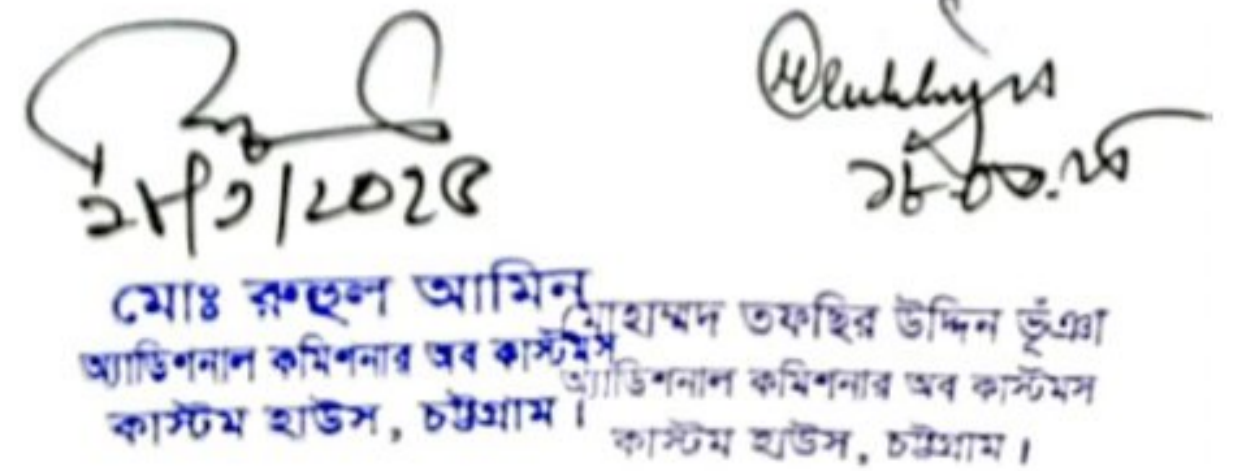 মোঃ রুহুল আমিন
অ্যাডিশনাল কমিশনার অব কাস্টমস
কাস্টম হাউস, চট্টগ্রাম।
মোহাম্মদ তফছির উদ্দিন ভূঁঞা
অ্যাডিশনাল কমিশনার অব কাস্টমস
কাস্টম হাউস, চট্টগ্রাম।